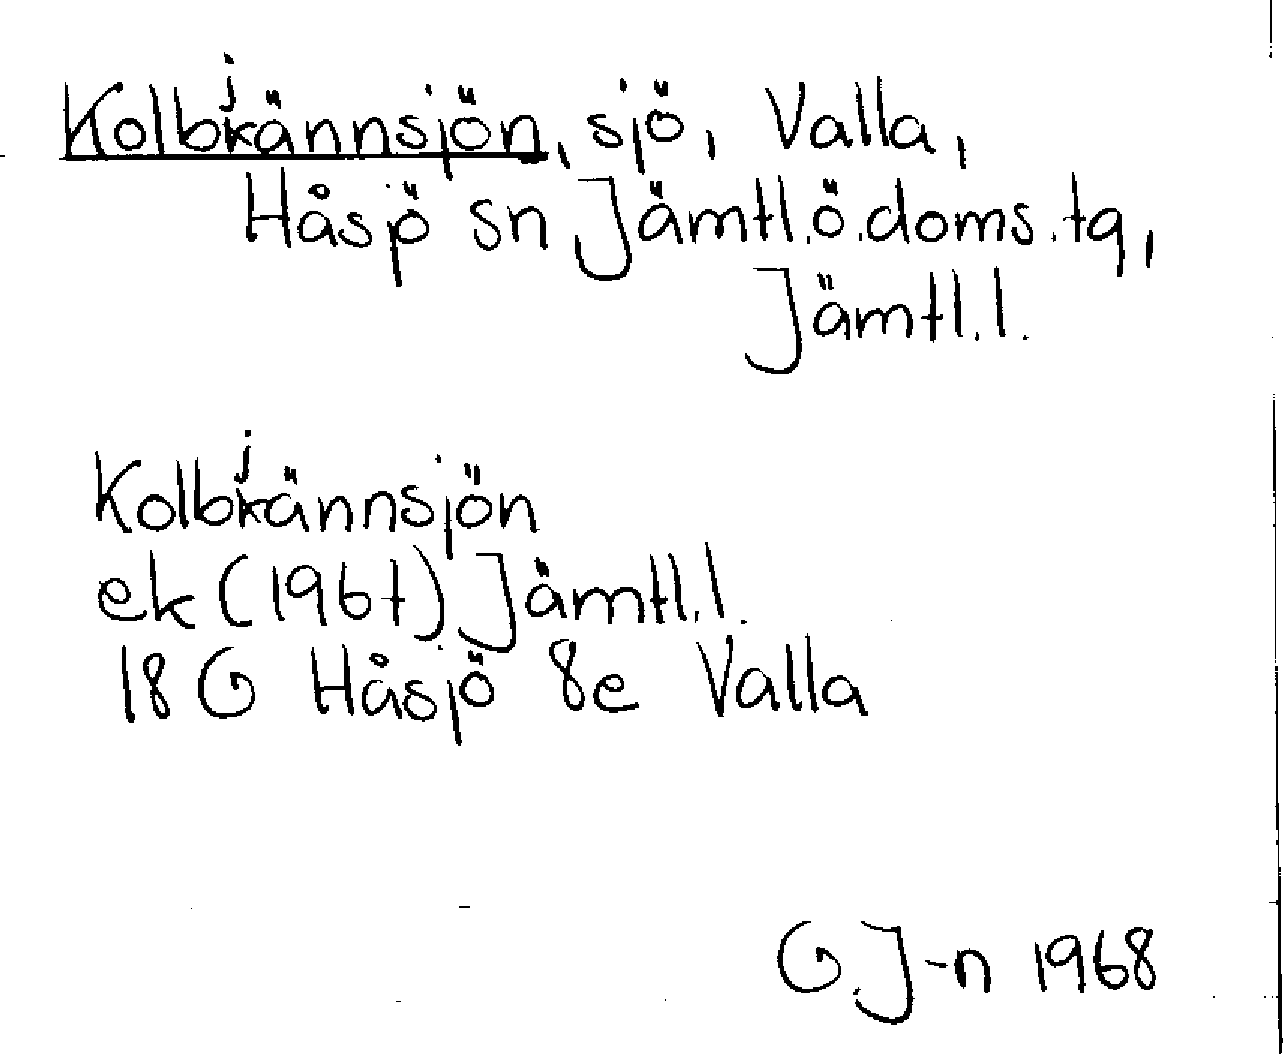 Kolbjännsjön, sjö, Valla,
Håsjö sn Jämtl.ö.doms.tg,
Jämtl.l.
Kolbjännsjön
ek (1967) Jämtl.l.
18 G Håsjö 8e Valla
G.J-n 1968